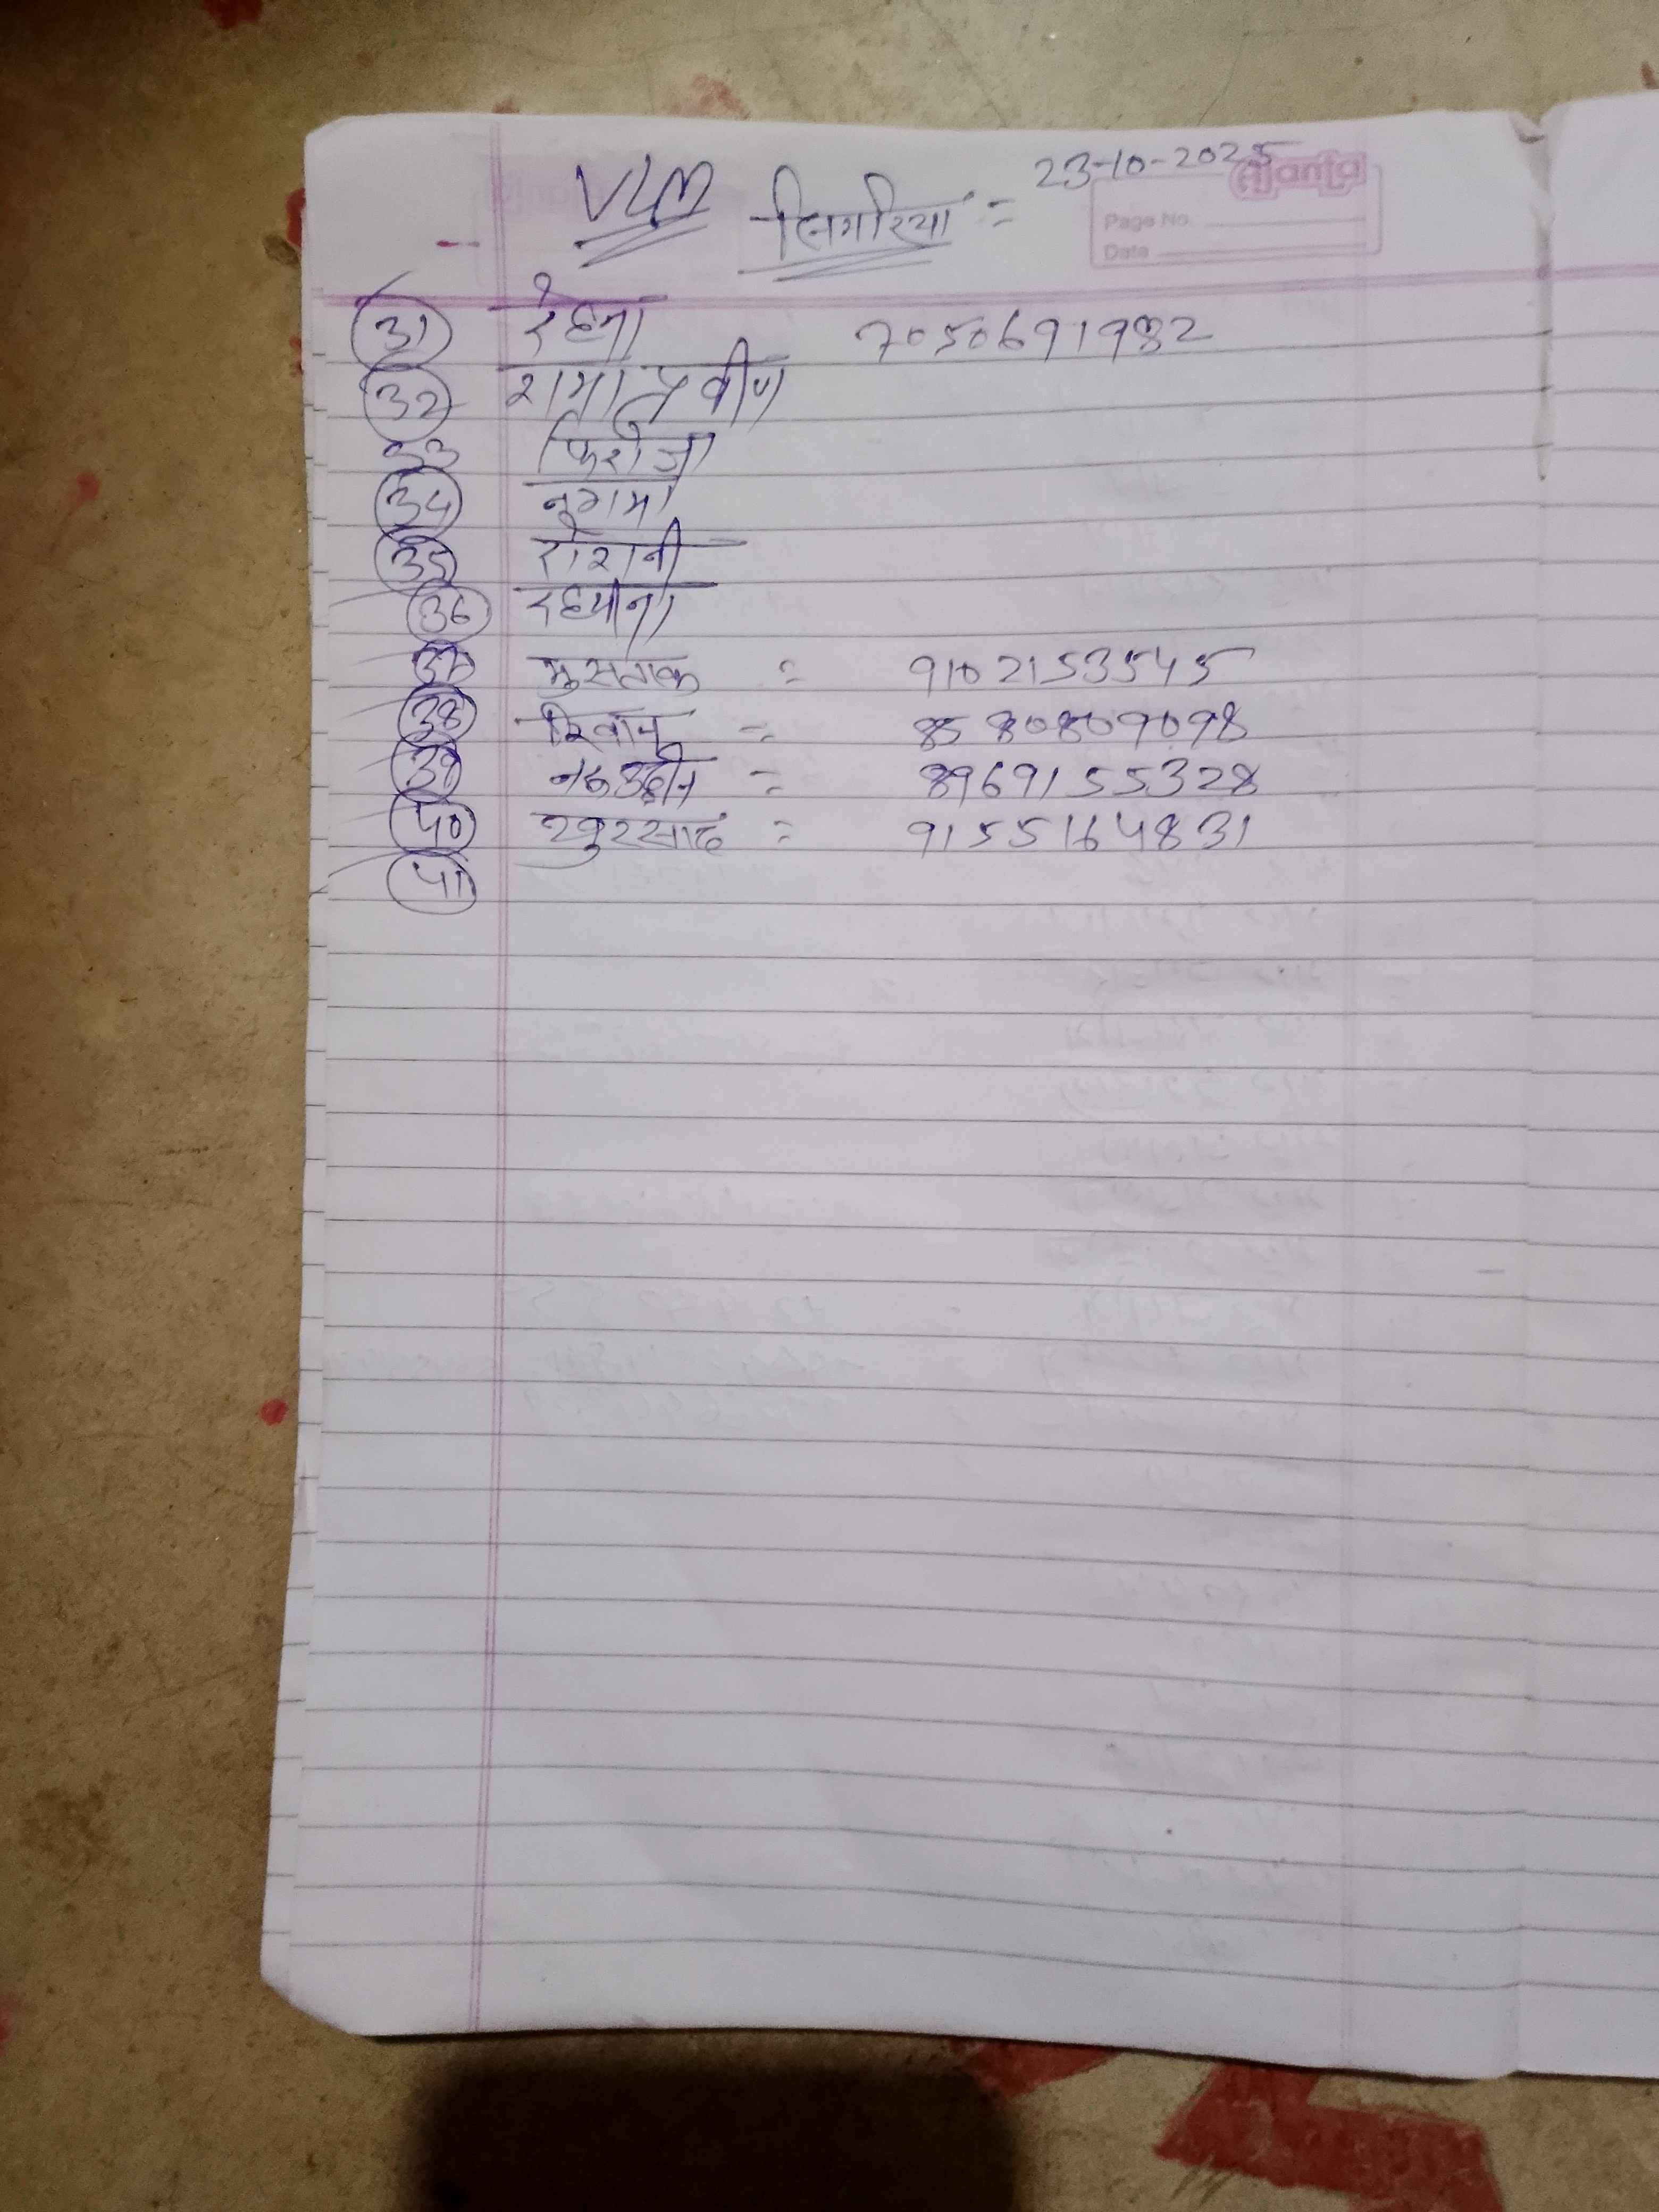 VLM सिगरिया = 23-10-2025
Ajanta
Page No.
Date
31 रेहना 7050691982
32 शमा प्रवीण
33 फिरोजा
34 नगमा
35 रोशनी
36
37 मुसताक = 9102153545
38 रिवान = 8580809098
39 = 8969155328
40 खुरसाद = 9155164831
41